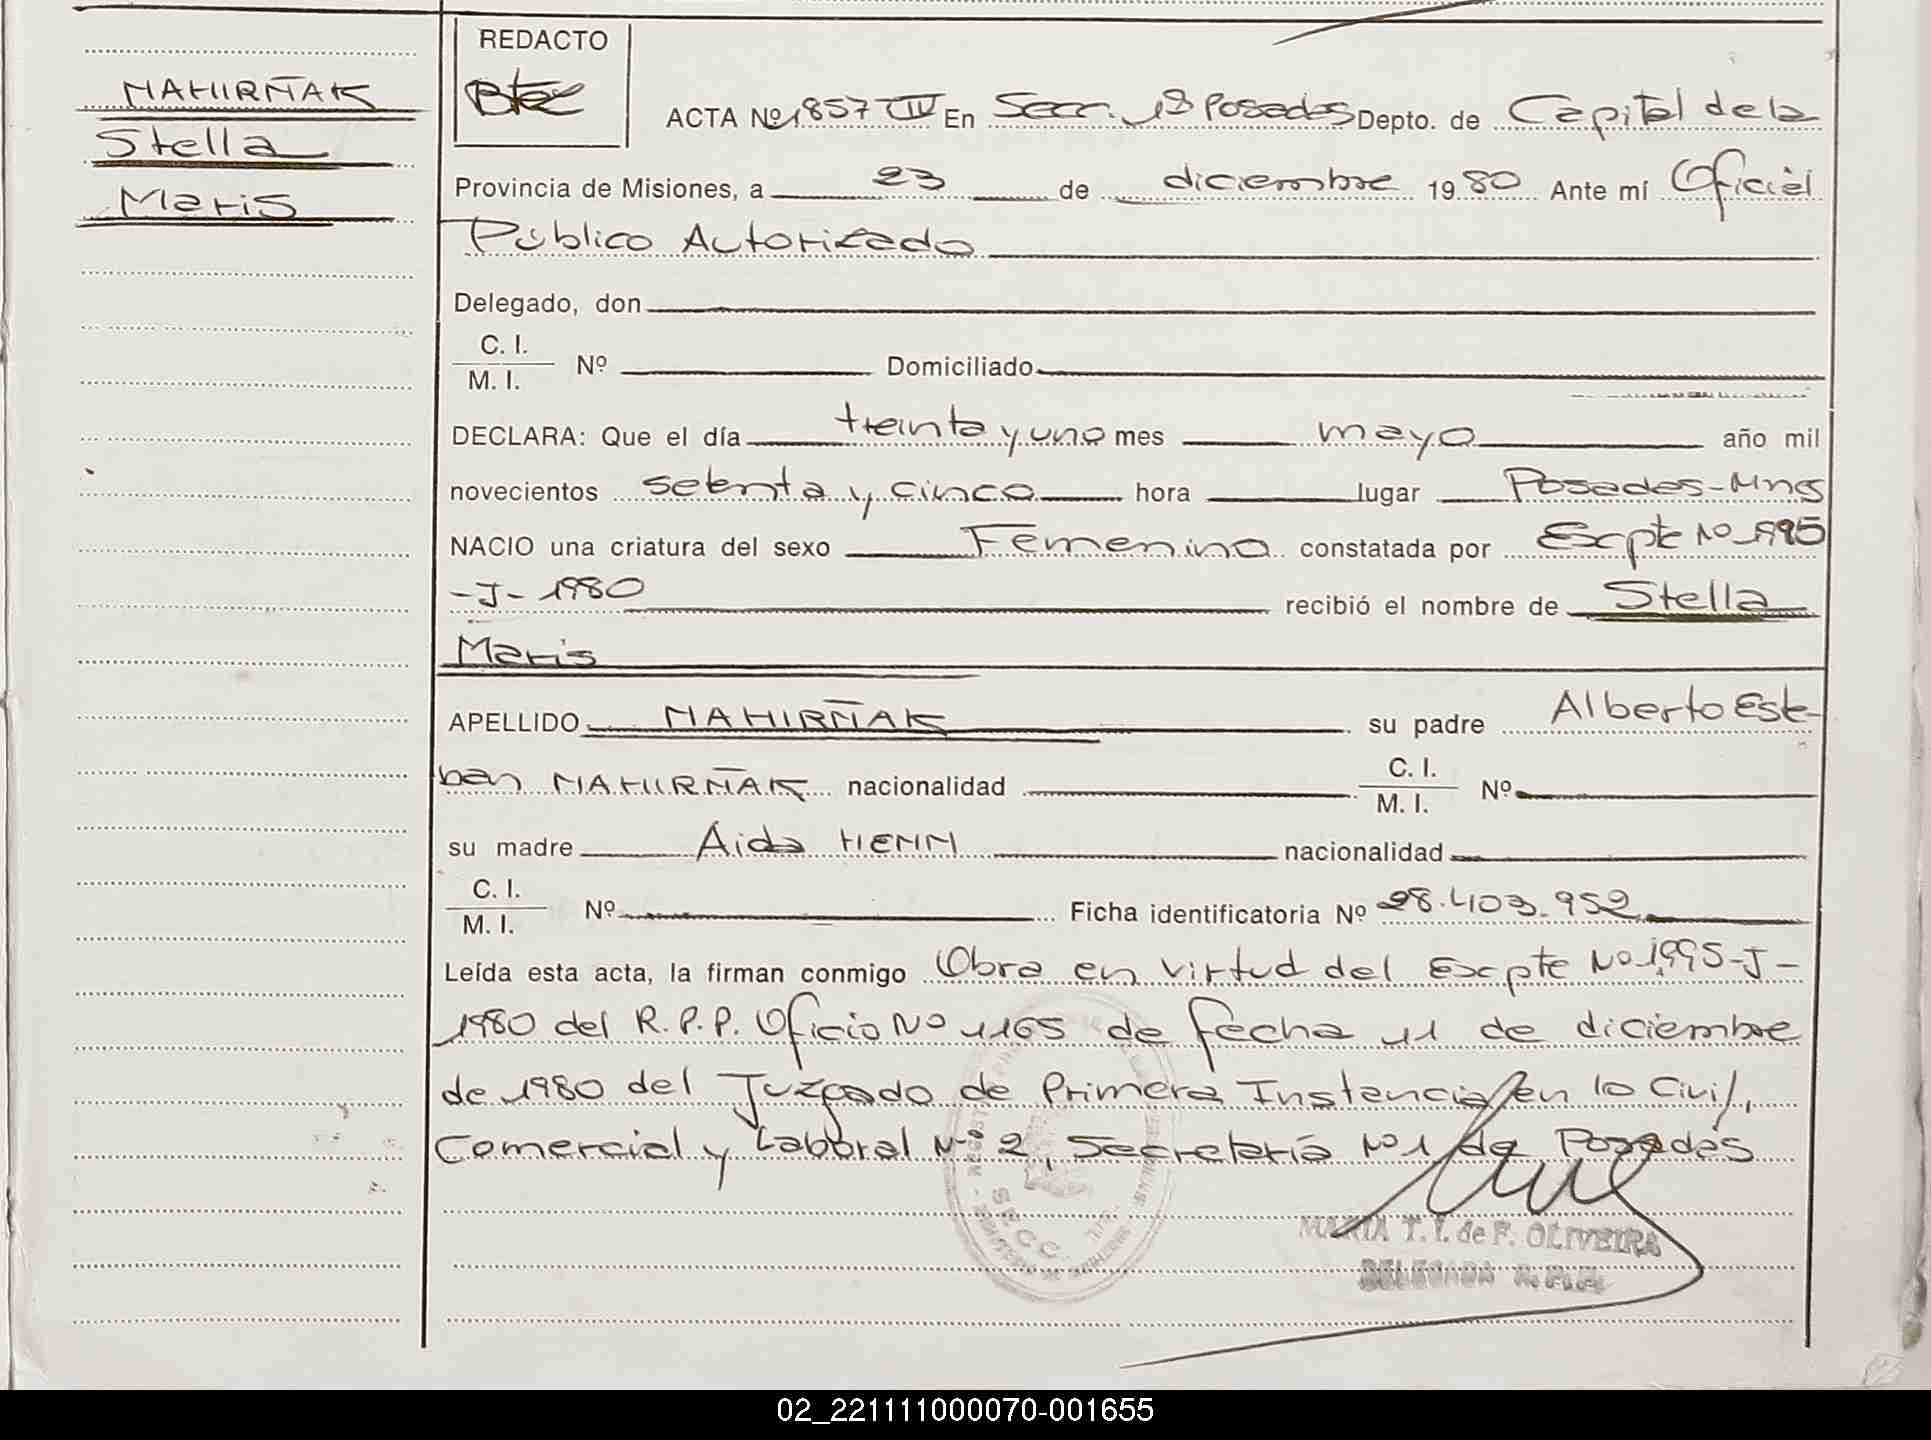 NAHIRÑAK
Stella
Maris
REDACTO
ACTA Nº 1857 TIV En Secc. 1ª Posadas Depto. de Capital de la
Provincia de Misiones, a 23 de diciembre 1980 Ante mí Oficial
Público Autorizado
Delegado, don
C. I.
M. I. Nº Domiciliado
DECLARA: Que el día treinta y uno mes mayo año mil
novecientos setenta y cinco hora lugar Posadas-Mnes
NACIO una criatura del sexo Femenino constatada por Excpte Nº 1995
-J- 1980 recibió el nombre de Stella
Maris
APELLIDO NAHIRÑAK su padre Alberto Este-
ban NAHIRÑAK nacionalidad C. I. M. I. Nº
su madre Aida HENN nacionalidad
C. I.
M. I. Nº Ficha identificatoria Nº 28.403.952
Leída esta acta, la firman conmigo Obra en virtud del Excpte Nº 1995-J-
1980 del R.P.P. Oficio Nº 1165 de fecha 11 de diciembre
de 1980 del Juzgado de Primera Instancia en lo Civil,
Comercial y Laboral Nº 2, Secretaría Nº 1 de Posadas
SECC.
MARIA T. I. de F. OLIVEIRA
DELEGADA R.P.P.
02_221111000070-001655